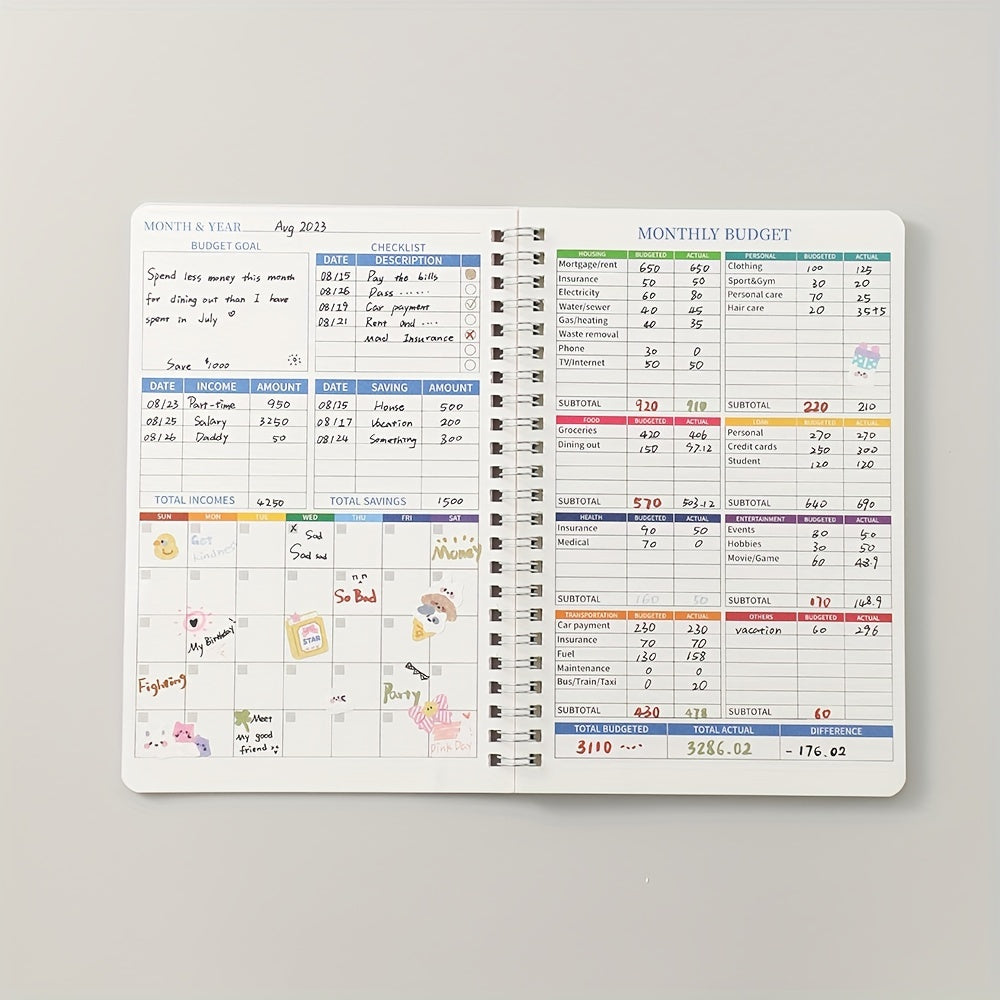 MONTH & YEAR Aug 2023
BUDGET GOAL
Spend less money this month
for dining out than I have
spent in July
Save $1000
CHECKLIST
DATE DESCRIPTION
08/15 Pay the bills
08/26 Pass ......
08/19 Car payment
08/21 Rent and ....
mad Insurance
DATE INCOME AMOUNT
08/23 Part-time 950
08/25 Salary 3250
08/26 Daddy 50
TOTAL INCOMES 4250
DATE SAVING AMOUNT
08/15 House 500
08/17 Vacation 200
08/24 Something 300
TOTAL SAVINGS 1500
SUN MON TUE WED THU FRI SAT
Get
kindness
x Sad
Sad sad
Money
So Bad
My Birthday!
STAR
Fighting
Party
Meet
My good
friend
Pink Day
MONTHLY BUDGET
HOUSING BUDGETED ACTUAL
Mortgage/rent 650 650
Insurance 50 50
Electricity 60 80
Water/sewer 40 45
Gas/heating 40 35
Waste removal
Phone 30 0
TV/Internet 50 50
SUBTOTAL 920 910
PERSONAL BUDGETED ACTUAL
Clothing 100 125
Sport&Gym 30 20
Personal care 70 25
Hair care 20 35+5
SUBTOTAL 220 210
FOOD BUDGETED ACTUAL
Groceries 420 406
Dining out 150 97.12
SUBTOTAL 570 503.12
LOAN BUDGETED ACTUAL
Personal 270 270
Credit cards 250 300
Student 120 120
SUBTOTAL 640 690
HEALTH BUDGETED ACTUAL
Insurance 90 50
Medical 70 0
SUBTOTAL 160 50
ENTERTAINMENT BUDGETED ACTUAL
Events 80 50
Hobbies 30 50
Movie/Game 60 43.9
SUBTOTAL 170 148.9
TRANSPORTATION BUDGETED ACTUAL
Car payment 230 230
Insurance 70 70
Fuel 130 158
Maintenance 0 0
Bus/Train/Taxi 0 20
SUBTOTAL 430 478
OTHERS BUDGETED ACTUAL
vacation 60 296
SUBTOTAL 60
TOTAL BUDGETED TOTAL ACTUAL DIFFERENCE
3110 .... 3286.02 -176.02